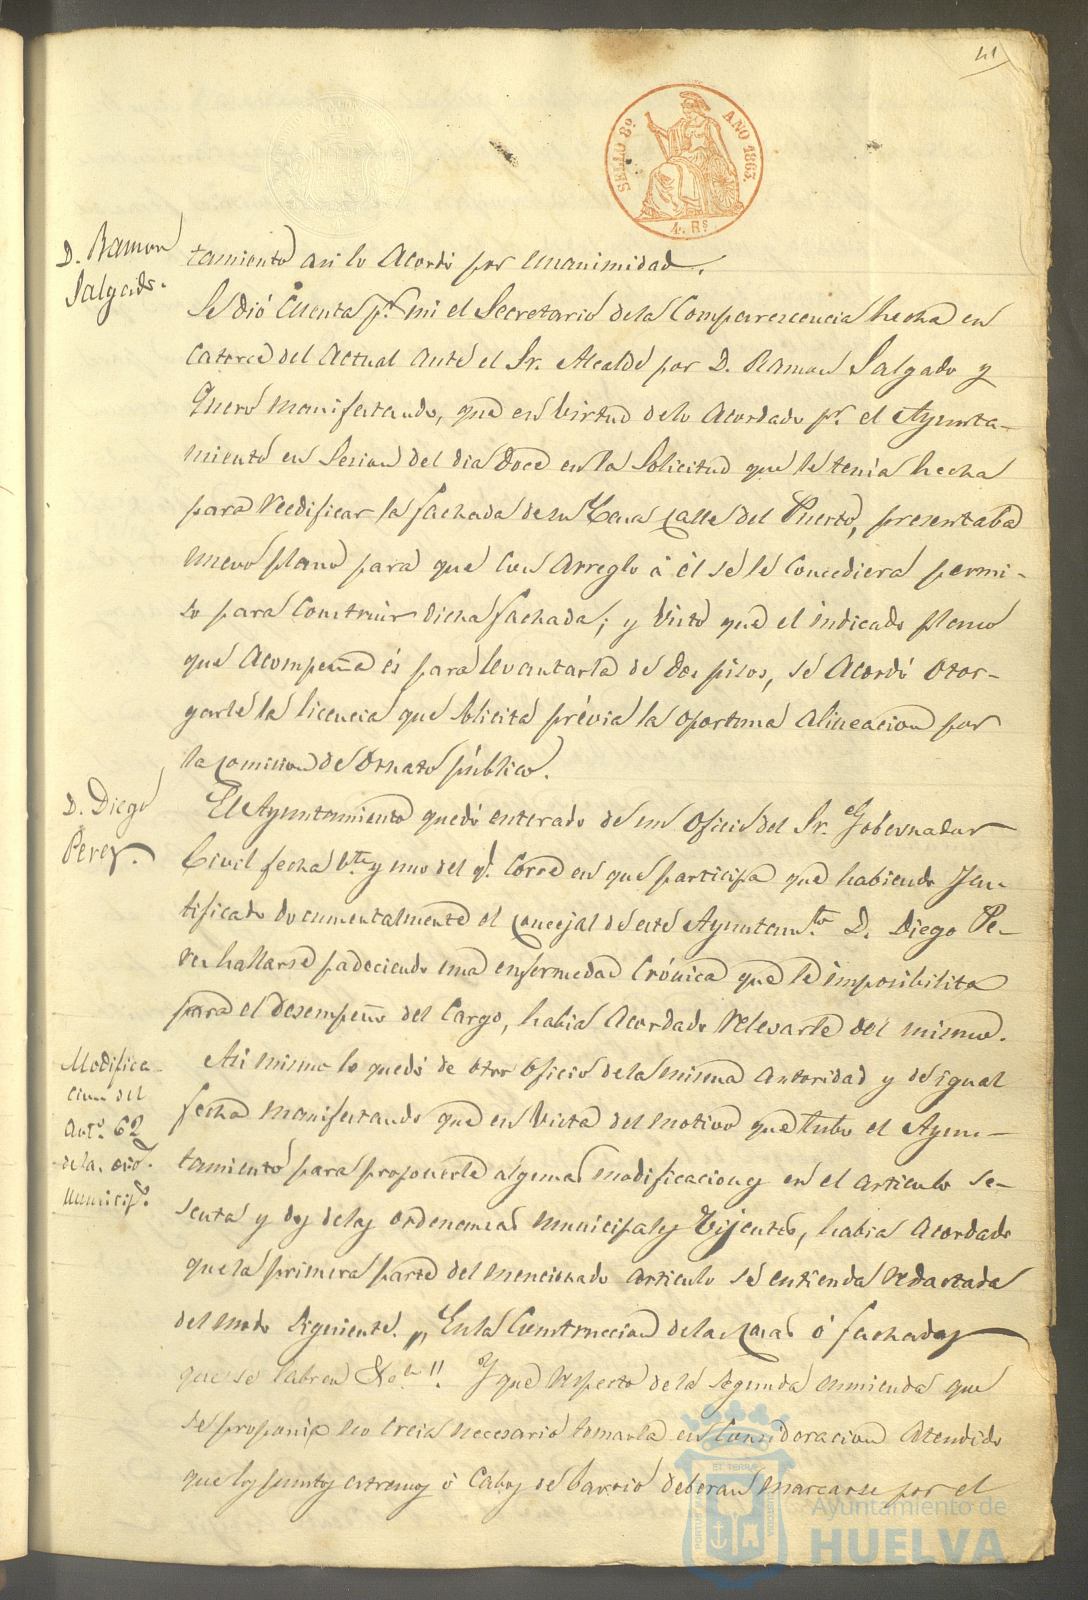 41
SELLO 8º. AÑO 1863.
4. Rs.
D. Ramon
Salgado.
tamiento asi lo Acordó por Unanimidad.
Se dió Cuenta pr. mi el Secretario de la Comparescencia hecha en
Catorce del Actual ante el Sr. Alcalde por D. Ramon Salgado y
Quero manifestando, que en birtud de lo Acordado pr. el Ayunta-
miento en Sesion del dia Doce en la Solicitud que le tenia hecha
para Reedificar la fachada de su Casa calle del Puerto, presentaba
nuevo plano para que con Arreglo á él se le Concediera permi-
so para Construir dicha fachada; y visto que el indicado plano
que Acompaña és para levantarla de dos pisos, se Acordó otor-
garle la licencia que solicita prévia la oportuna Alineacion por
la comision de Ornato público.
D. Diego
Perez.
El Ayuntamiento quedó enterado de un oficio del Sr. Gobernador
Civil fecha bte. y uno del q. corre en que participa que habiendo Jus-
tificado documentalmente el concejal de este Ayuntamto. D. Diego Pe-
rez hallarse padeciendo una enfermedad Crónica que le imposibilita
para el desempeño del Cargo, habia Acordado Relevarle del mismo.
Modifica-
cion del
Arto. 62
de las ord.
municips.
Asi mismo lo quedó de otro oficio de la misma autoridad y de igual
fecha manifestando que en Vista del motivo que tubo el Ayun-
tamiento para proponerle algunas modificaciones en el articulo se-
senta y dos de las ordenanzas municipales Vijentes, habia Acordado
que la primera parte del mencionado articulo se entienda redactada
del modo siguiente. „ En la Construccion de las casas ó fachadas
que se labren &a. ". Y que respecto de la segunda enmienda que
se proponia no creia necesario tomarla en Consideracion Atendido
que los puntos estremos ó Cabos de barrio deberan marcarse por el
Ayuntamiento de
HUELVA